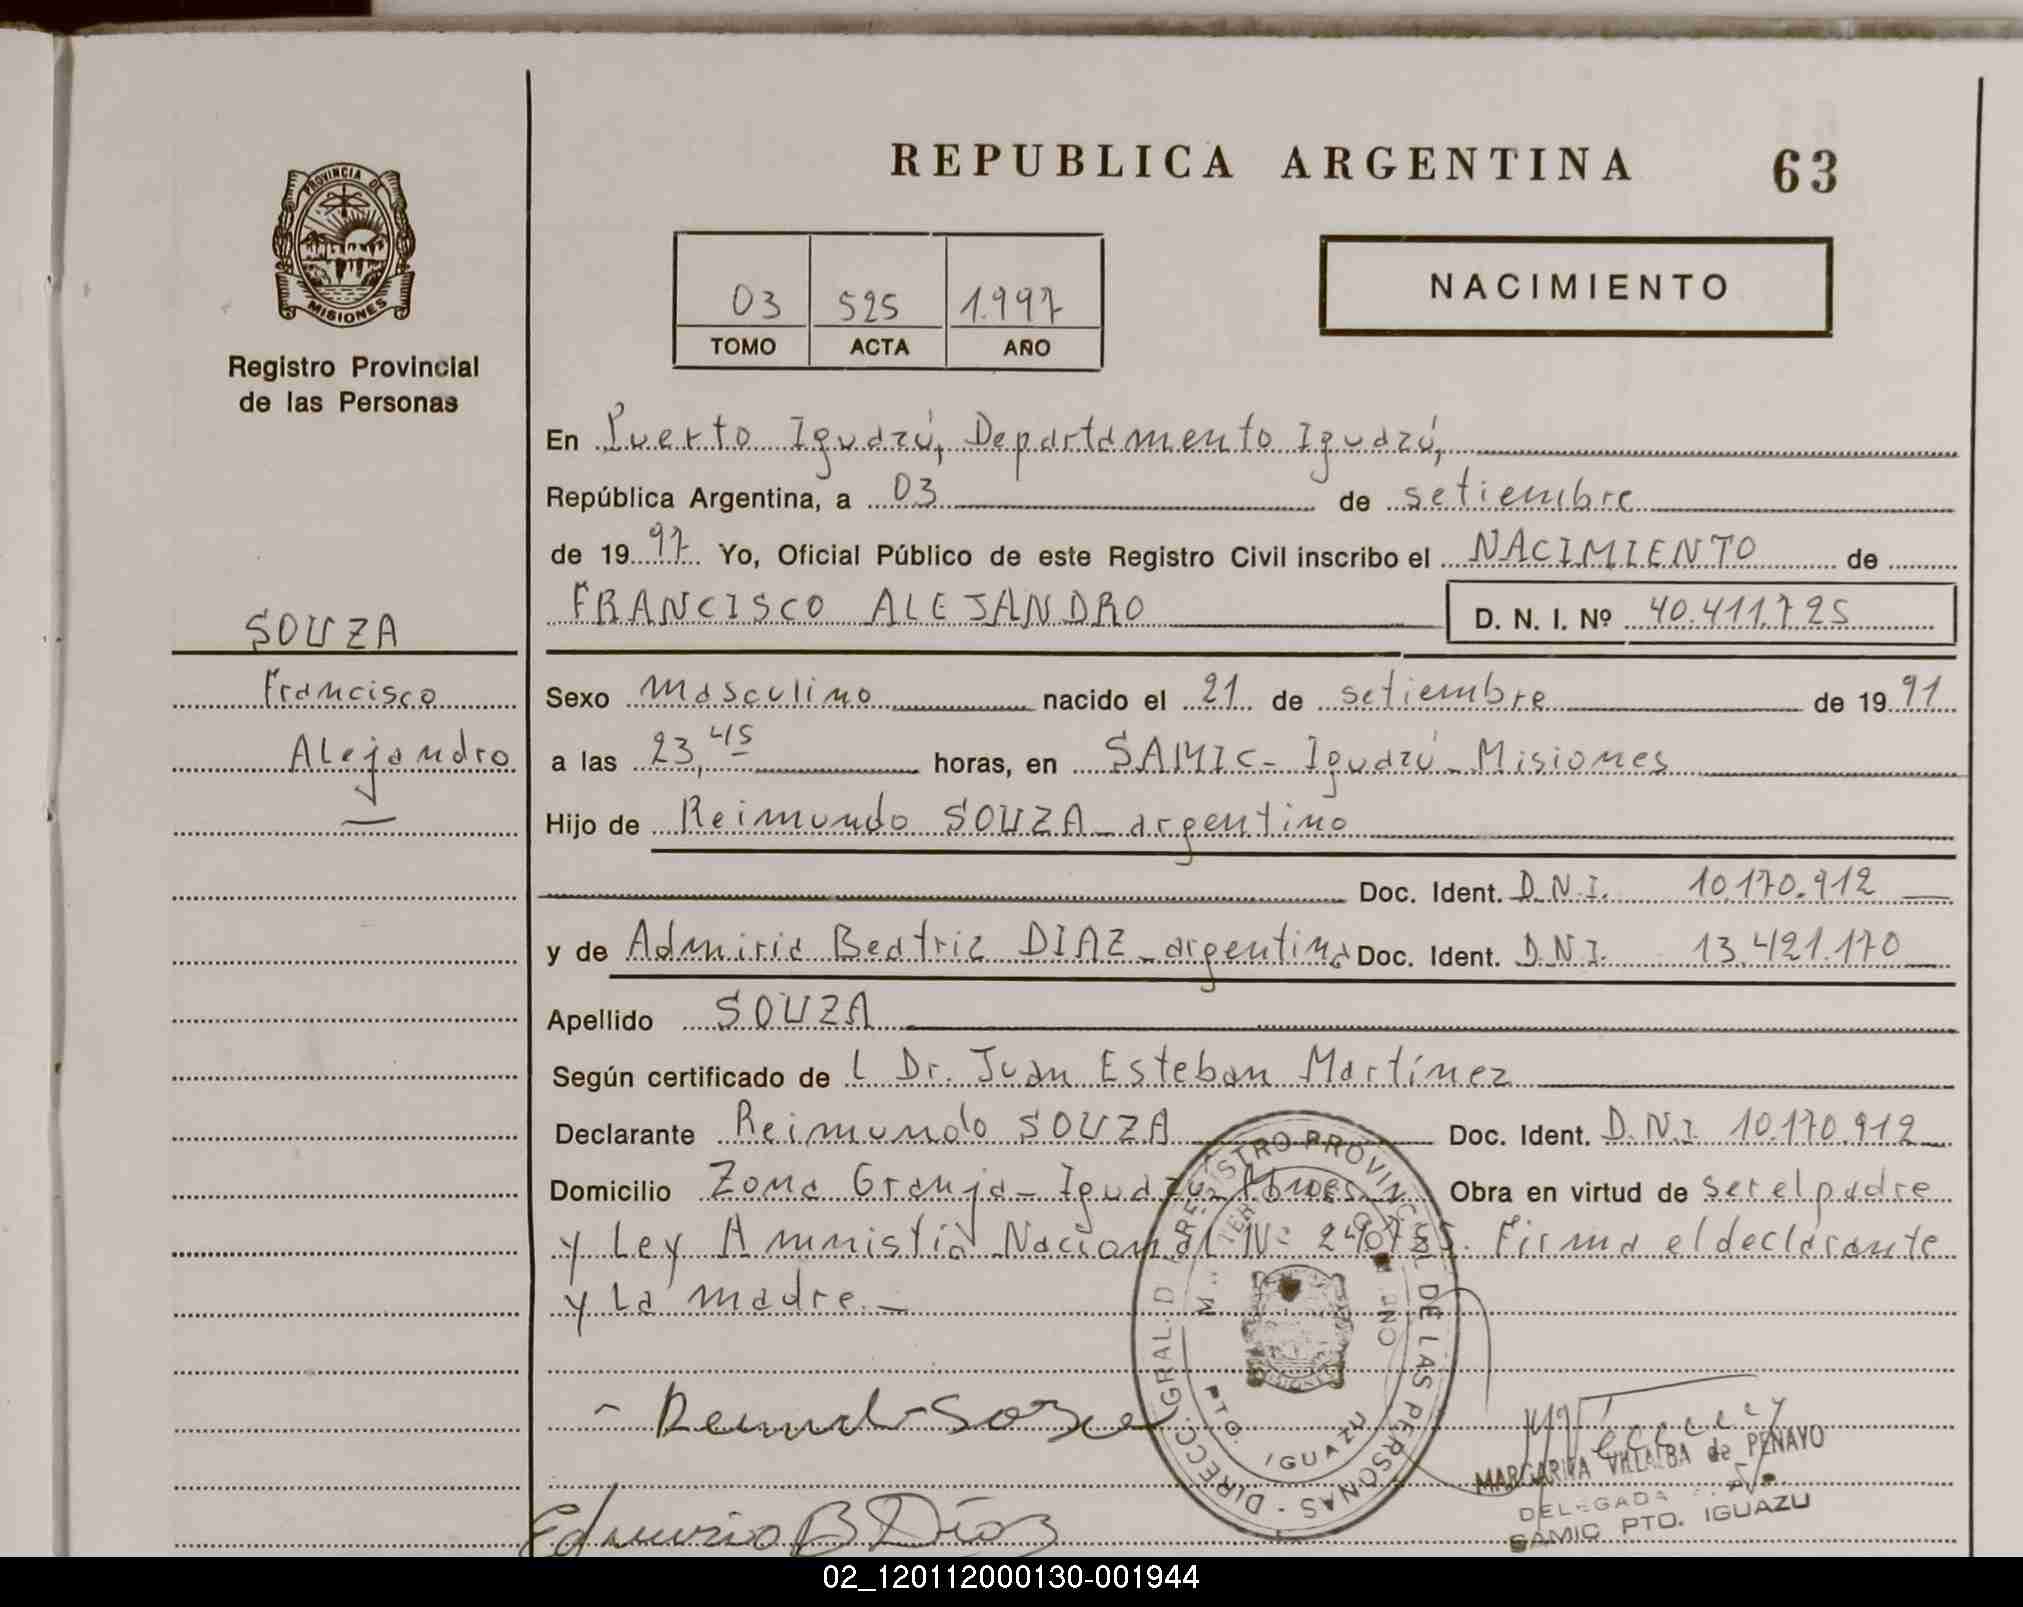 REPUBLICA ARGENTINA 63
PROVINCIA DE
MISIONES
Registro Provincial
de las Personas
03 525 1.997
TOMO ACTA AÑO
NACIMIENTO
En Puerto Iguazú, Departamento Iguazú,
República Argentina, a 03 de setiembre
de 1997 Yo, Oficial Público de este Registro Civil inscribo el NACIMIENTO de
FRANCISCO ALEJANDRO D. N. I. Nº 40.411.725
SOUZA
Francisco
Alejandro
Sexo masculino nacido el 21 de setiembre de 1991
a las 23,45 horas, en SAMIC - Iguazú - Misiones
Hijo de Reimundo SOUZA - argentino
Doc. Ident. D.N.I. 10.170.912
y de Admiria Beatriz DIAZ - argentina Doc. Ident. D.N.I. 13.421.170
Apellido SOUZA
Según certificado de l Dr. Juan Esteban Martínez
Declarante Reimundo SOUZA Doc. Ident. D.N.I. 10.170.912
Domicilio Zona Granja - Iguazú - Obra en virtud de ser el padre
y Ley Amnistía Nacional Nº Firma el declarante
y la madre. -
DIRECC. GRAL. D REGISTRO PROVINCIAL DE LAS PERSONAS
PTO. IGUAZU
MARGARITA VILLALBA de PENAYO
DELEGADA
SAMIC PTO. IGUAZU
B Díaz
02_120112000130-001944